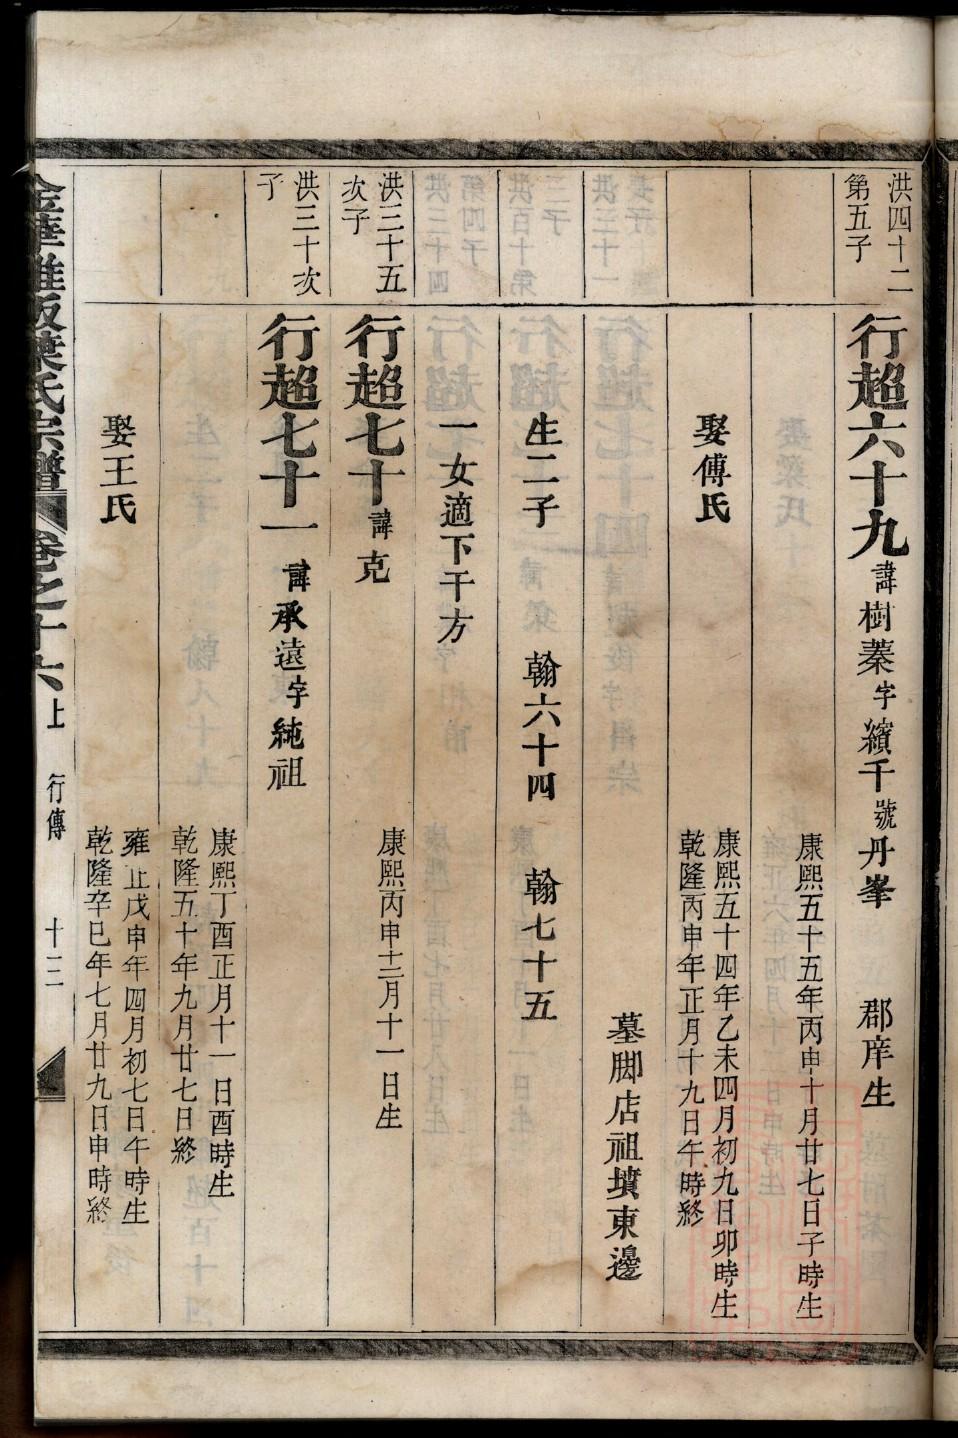 洪四十二
第五子
行超六十九諱樹蓁字繽千號丹峯 郡庠生
康熙五十五年丙申十月廿七日子時生
娶傅氏
康熙五十四年乙未四月初九日卯時生
乾隆丙申年正月十九日午時終
墓脚店祖墳東邊
生二子 翰六十四 翰七十五
一女適下干方
洪三十五
次子
行超七十諱克
康熙丙申十二月十一日生
洪三十次
子
行超七十一諱承遠字純祖
康熙丁酉正月十一日酉時生
乾隆五十年九月廿七日終
娶王氏
雍正戊申年四月初七日午時生
乾隆辛巳年七月廿九日申時終
金華雅畈葉氏宗譜 卷之十六上 行傳 十三